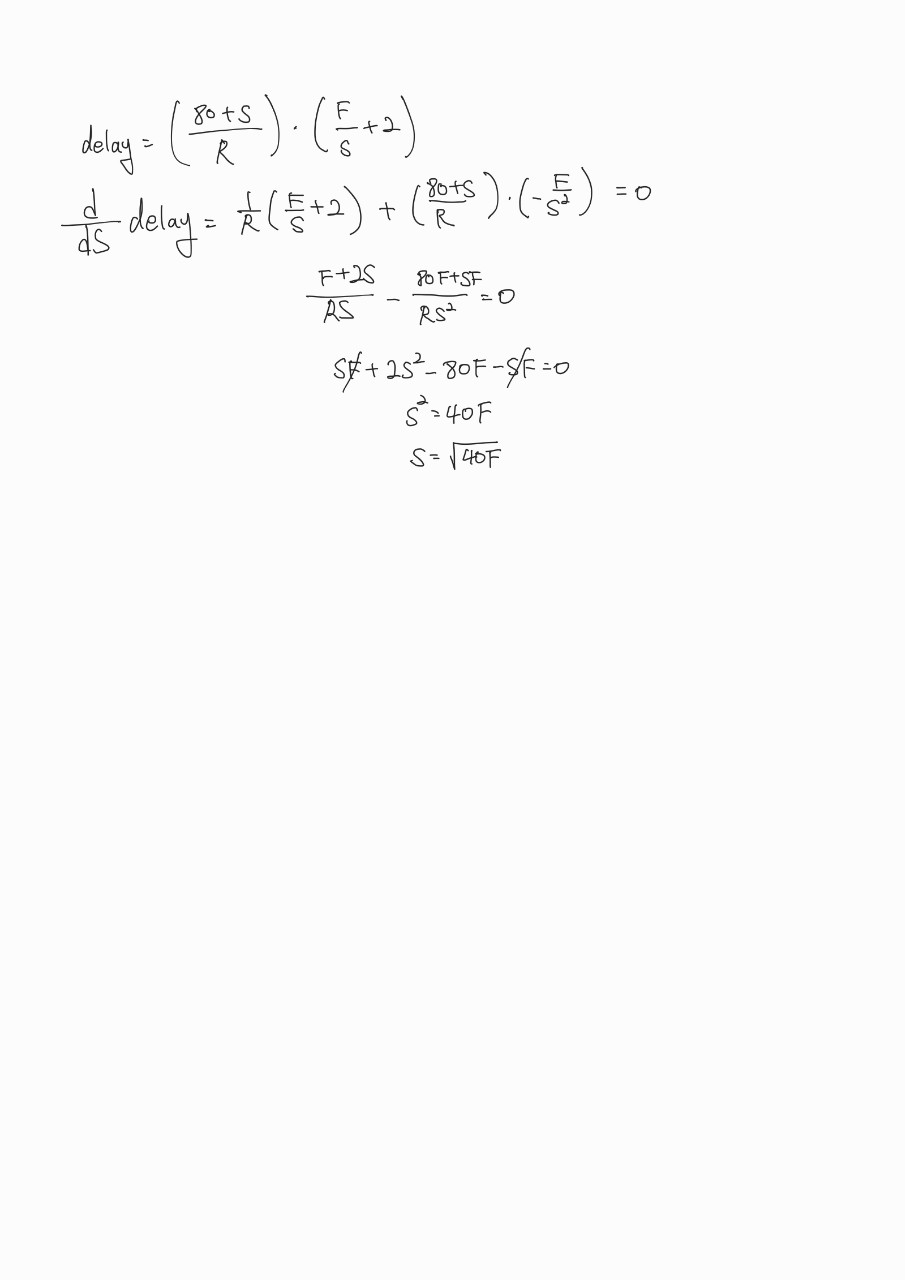 delay = ((80+S)/R) · (F/S + 2)
d/dS delay = 1/R (F/S + 2) + ((80+S)/R) · (-F/S²) = 0
(F+2S)/(RS) - (80F+SF)/(RS²) = 0
SF + 2S² - 80F - SF = 0
S² = 40F
S = √40F